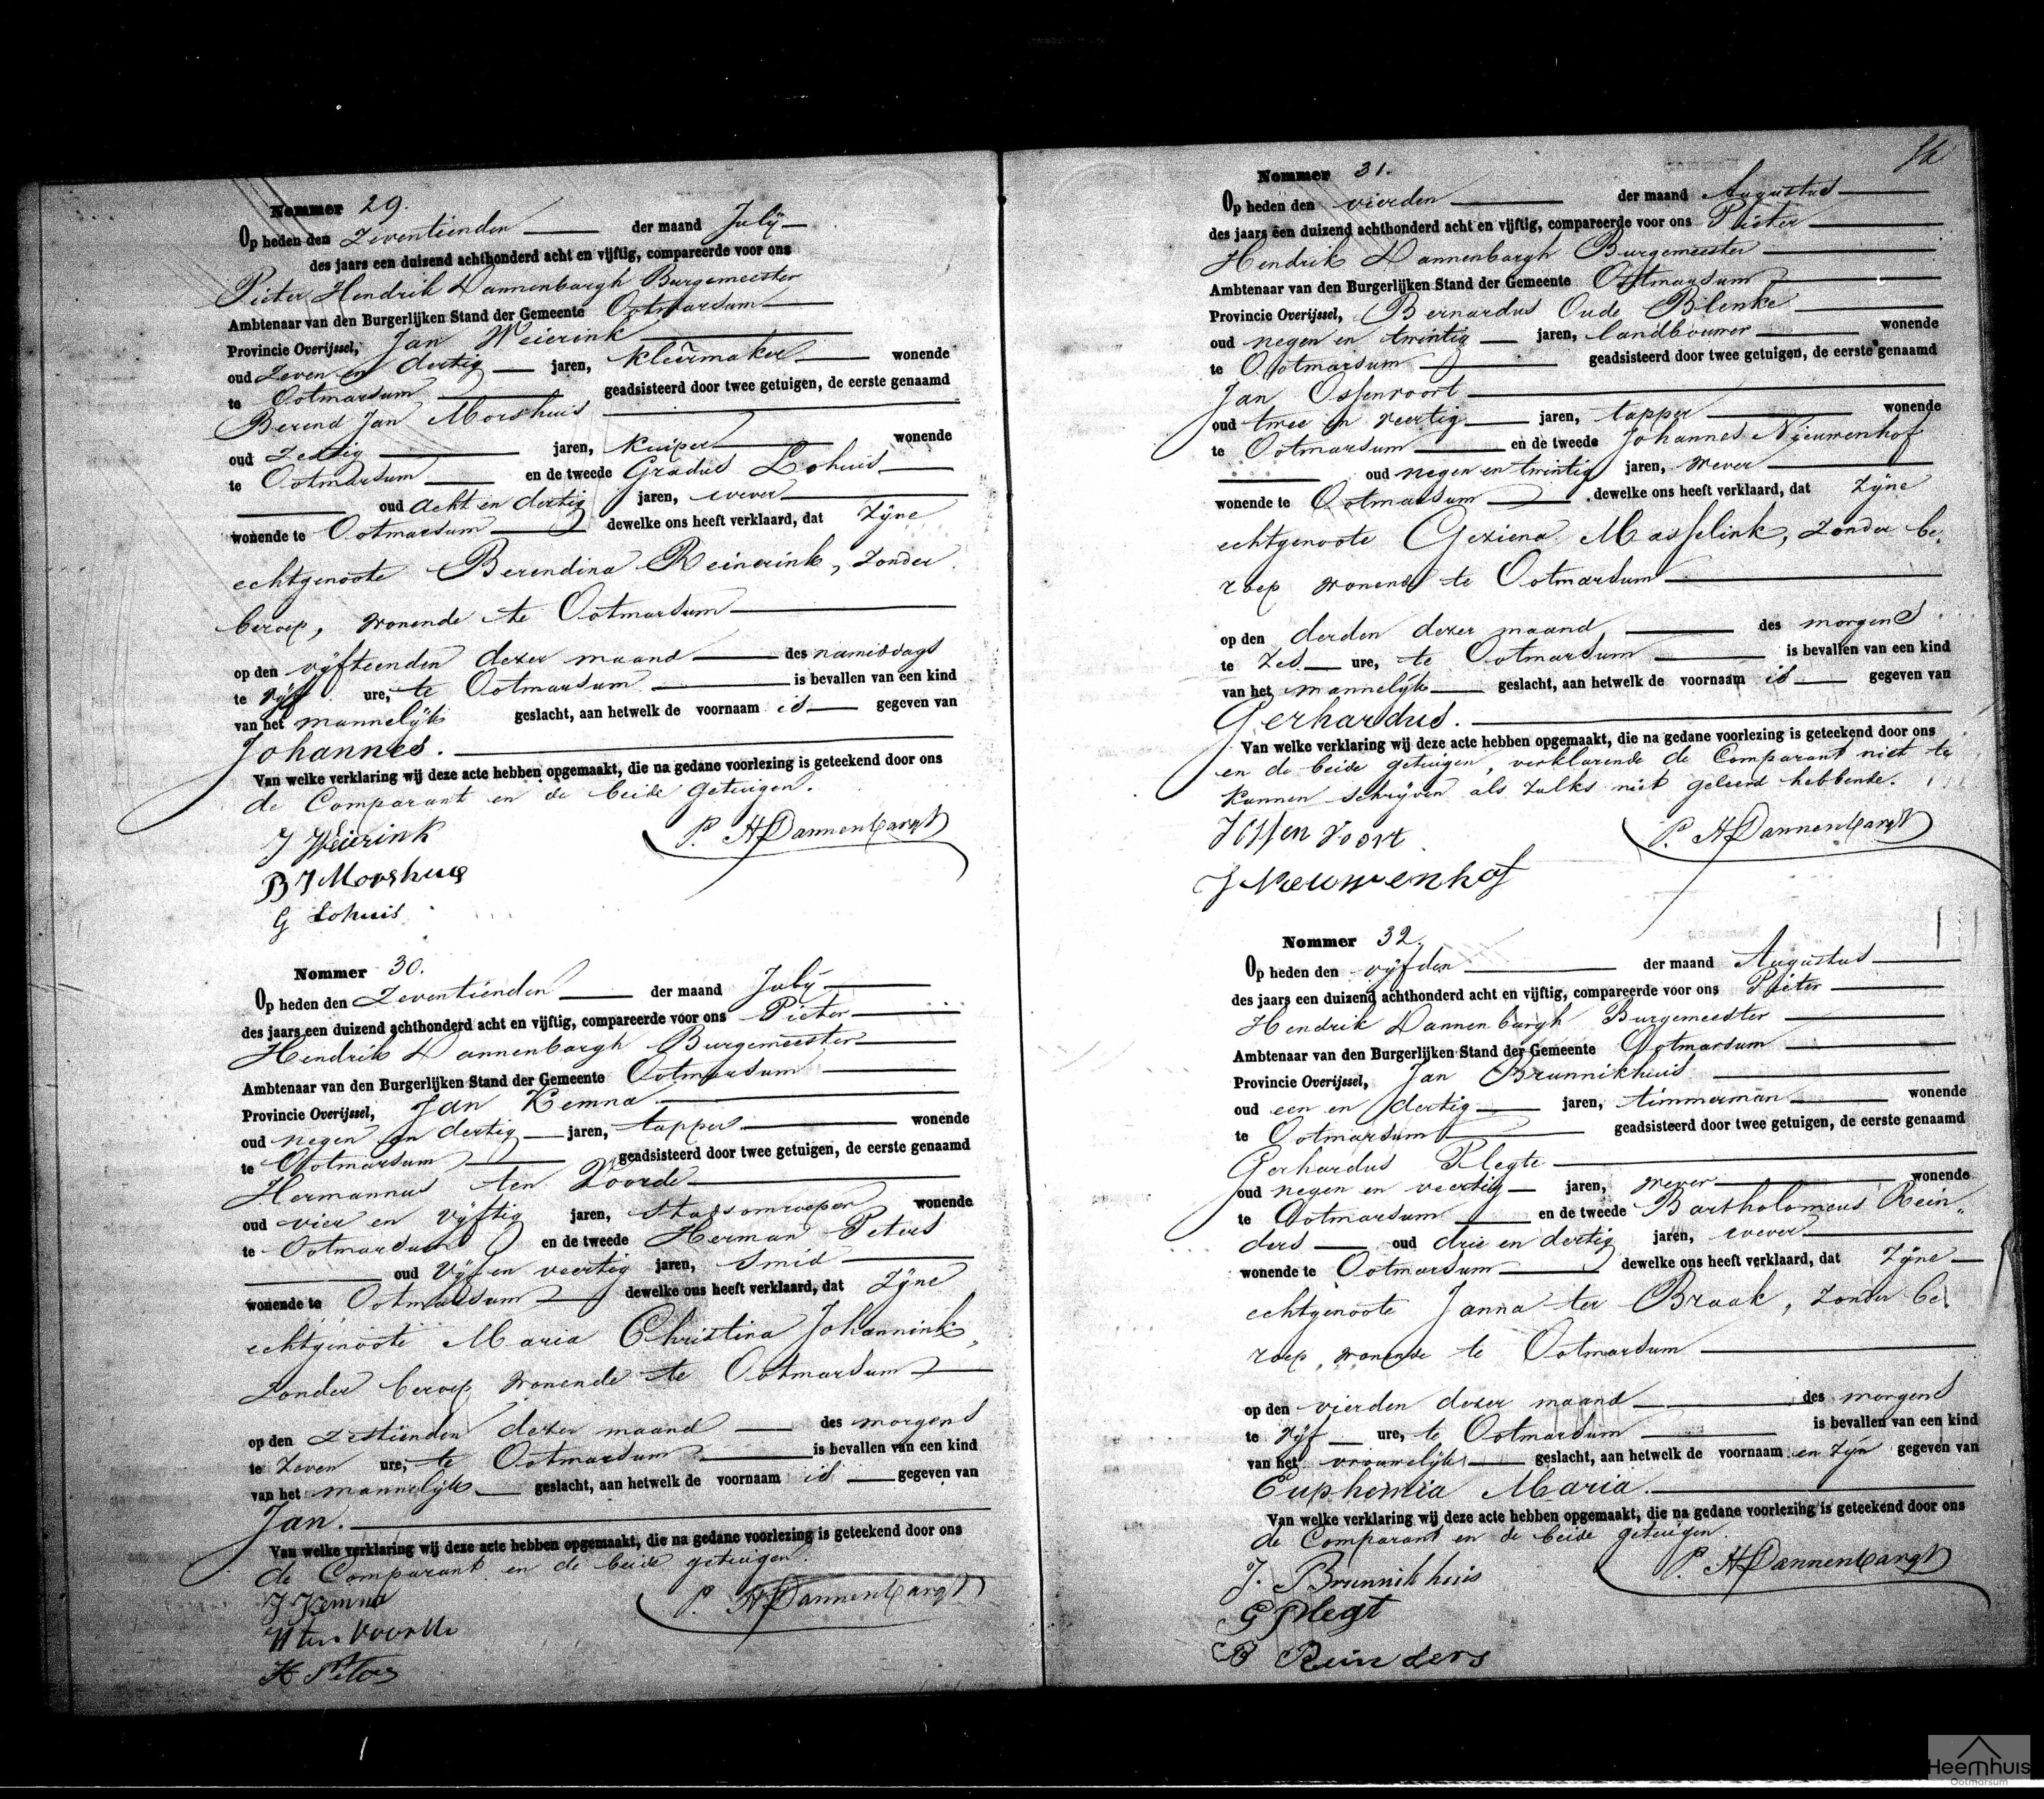 Nommer 29.
Op heden den Zeventienden der maand Julij
des jaars een duizend achthonderd acht en vijftig, compareerde voor ons
Pieter Hendrik Dannenbargh Burgemeester
Ambtenaar van den Burgerlijken Stand der Gemeente Ootmarsum
Provincie Overijssel, Jan Weierink
oud Zeven en dertig jaren, kleermaker wonende
te Ootmarsum geadsisteerd door twee getuigen, de eerste genaamd
Berend Jan Morshuis
oud Zestig jaren, kuiper wonende
te Ootmarsum en de tweede Gradus Lohuis
oud acht en dertig jaren, wever
wonende te Ootmarsum dewelke ons heeft verklaard, dat Zijne
echtgenoote Berendina Reinerink, zonder
beroep, wonende te Ootmarsum
op den vijftienden dezer maand des namiddags
te vijf ure, te Ootmarsum is bevallen van een kind
van het mannelijk geslacht, aan hetwelk de voornaam is gegeven van
Johannes.
Van welke verklaring wij deze acte hebben opgemaakt, die na gedane voorlezing is geteekend door ons
de Comparant en de beide getuigen.
J Weierink
P. H Dannenbargh
B J Morshuis
G Lohuis
Nommer 30.
Op heden den Zeventienden der maand July
des jaars een duizend achthonderd acht en vijftig, compareerde voor ons Pieter
Hendrik Dannenbargh Burgemeester
Ambtenaar van den Burgerlijken Stand der Gemeente Ootmarsum
Provincie Overijssel, Jan Kemna
oud negen en dertig jaren, tapper wonende
te Ootmarsum geadsisteerd door twee getuigen, de eerste genaamd
Hermannus ten Voorde
oud vier en vijftig jaren, stadsomroeper wonende
te Ootmarsum en de tweede Herman Peters
oud Vijf en veertig jaren, Smid
wonende te Ootmarsum dewelke ons heeft verklaard, dat Zijne
echtgenoote Maria Christina Johannink,
Zonder beroep wonende te Ootmarsum
op den zestienden dezer maand des morgens
te Zeven ure, te Ootmarsum is bevallen van een kind
van het mannelijk geslacht, aan hetwelk de voornaam is gegeven van
Jan.
Van welke verklaring wij deze acte hebben opgemaakt, die na gedane voorlezing is geteekend door ons
de Comparant en de beide getuigen.
J Kemna
P. H Dannenbargh
H ten Voorde
H Peters
Nommer 31.
Op heden den vierden der maand Augustus
des jaars een duizend achthonderd acht en vijftig, compareerde voor ons Pieter
Hendrik Dannenbargh Burgemeester
Ambtenaar van den Burgerlijken Stand der Gemeente Ootmarsum
Provincie Overijssel, Bernardus Oude Blenke
oud negen en twintig jaren, landbouwer wonende
te Ootmarsum geadsisteerd door twee getuigen, de eerste genaamd
Jan Ossenvoort
oud twee en veertig jaren, tapper wonende
te Ootmarsum en de tweede Johannes Nijeuwenhof
oud negen en twintig jaren, wever
wonende te Ootmarsum dewelke ons heeft verklaard, dat Zijne
echtgenoote Geziena Masselink, zonder be,
roep wonende te Ootmarsum
op den derden dezer maand des morgens
te Zes ure, te Ootmarsum is bevallen van een kind
van het mannelijk geslacht, aan hetwelk de voornaam is gegeven van
Gerhardus.
Van welke verklaring wij deze acte hebben opgemaakt, die na gedane voorlezing is geteekend door ons
en de beide getuigen, verklarende de Comparant niet te
kunnen schrijven als zulks niet geleerd hebbende.
J Ossenvoort
P. H Dannenbargh
J Nieuwenhof
Nommer 32.
Op heden den vijfden der maand Augustus
des jaars een duizend achthonderd acht en vijftig, compareerde voor ons Pieter
Hendrik Dannenbargh Burgemeester
Ambtenaar van den Burgerlijken Stand der Gemeente Ootmarsum
Provincie Overijssel, Jan Brunnikhuis
oud een en dertig jaren, timmerman wonende
te Ootmarsum geadsisteerd door twee getuigen, de eerste genaamd
Gerhardus Plegte
oud negen en veertig jaren, wever wonende
te Ootmarsum en de tweede Bartholomeus Rein,,
ders oud drie en dertig jaren, wever
wonende te Ootmarsum dewelke ons heeft verklaard, dat Zijne
echtgenoote Janna ter Braak, zonder be,
roep, wonende te Ootmarsum
op den vierden dezer maand des morgens
te Vijf ure, te Ootmarsum is bevallen van een kind
van het vrouwelijk geslacht, aan hetwelk de voornaam en zijn gegeven van
Euphemia Maria.
Van welke verklaring wij deze acte hebben opgemaakt, die na gedane voorlezing is geteekend door ons
de Comparant en de beide getuigen.
J. Brunnikhuis
P. H Dannenbargh
G Plegt
B Reinders
Heemhuis
Ootmarsum